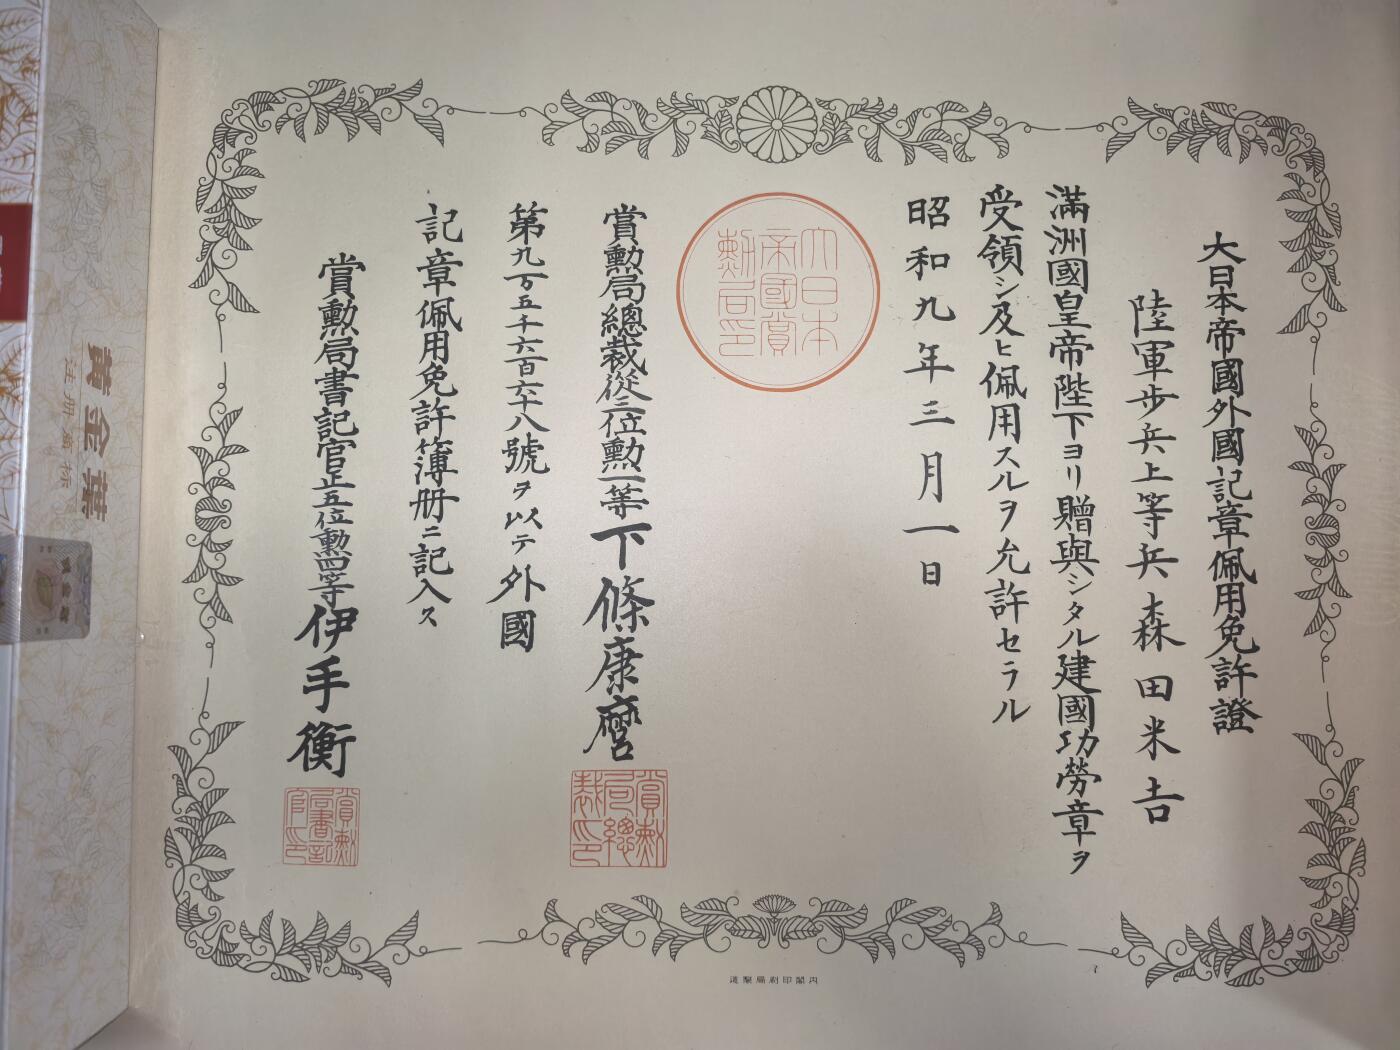 大日本帝國外國記章佩用免許證
陸軍歩兵上等兵森田米吉
滿洲國皇帝陛下ヨリ贈與シタル建國功勞章ヲ
受領シ及ヒ佩用スルヲ允許セラル
昭和九年三月一日
大日本
帝國賞
勲局印
賞勲局總裁從三位勲一等下條康麿
賞勲
局總
裁印
第九万五千六百六十八號ヲ以テ外國
記章佩用免許簿册ニ記入ス
賞勲局書記官正五位勲四等伊手衡
賞勲
局書記
官印
内閣印刷局製造
黃金葉
注册商标